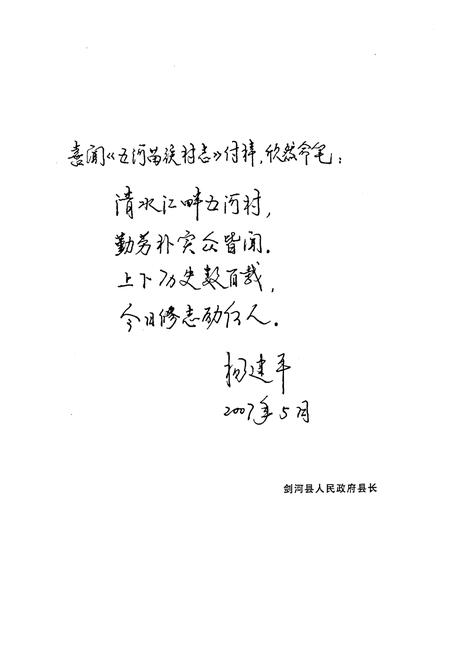 喜闻《五河苗族村志》付梓，欣然命笔：
清水江畔五河村，
勤劳朴实众皆闻。
上下历史数百载，
今日修志励后人。
杨建平
2007年5月
剑河县人民政府县长